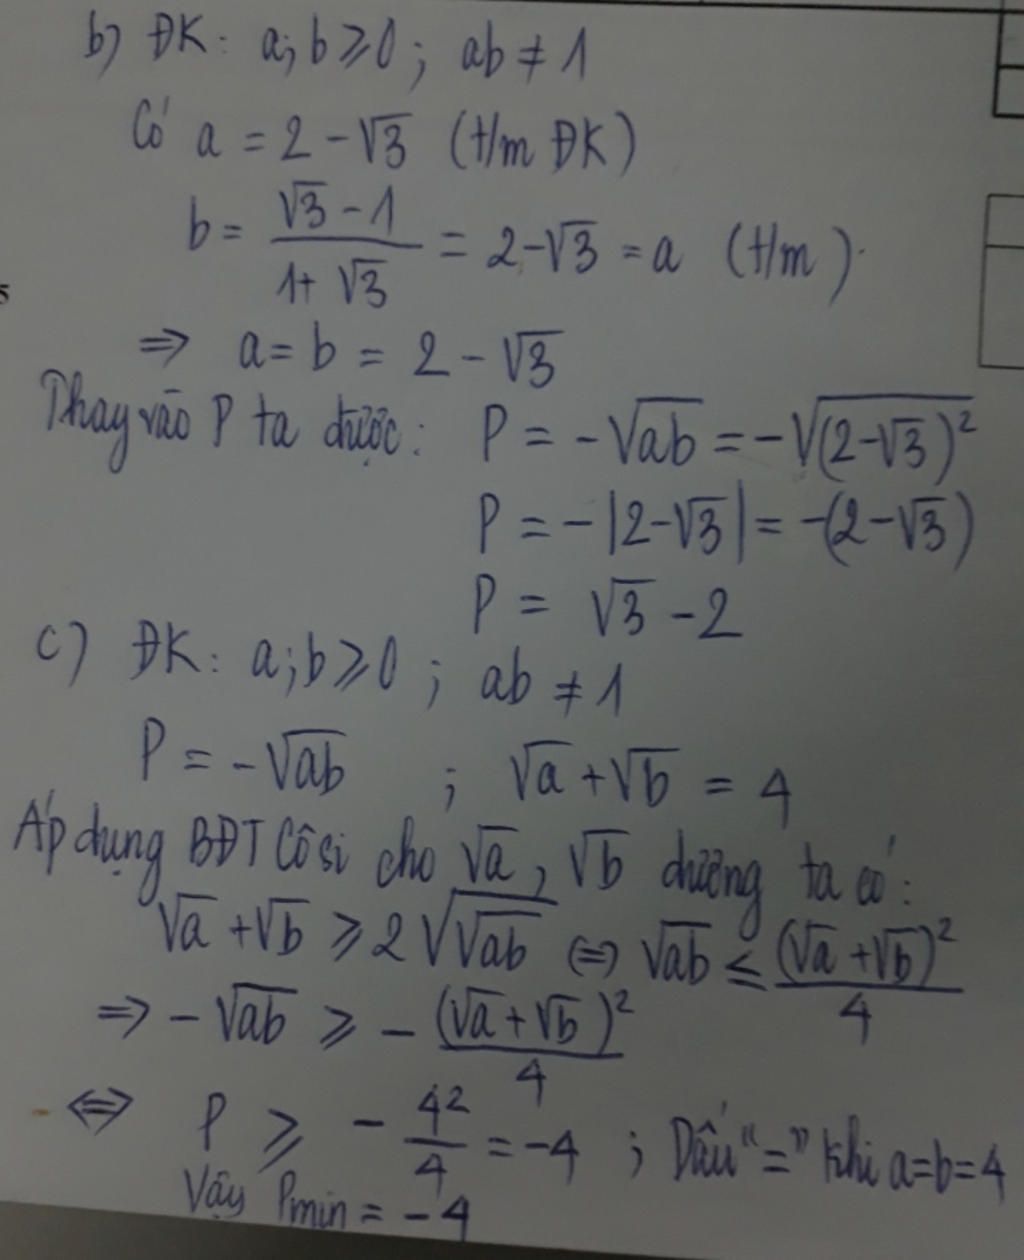 b) ĐK: a; b ≥ 0 ; ab ≠ 1
Có a = 2 - √3 (t/m ĐK)
b = (√3 - 1)/(1 + √3) = 2 - √3 = a (t/m).
5
⇒ a = b = 2 - √3
Thay vào P ta được: P = -√(ab) = -√((2-√3)²)
P = -|2-√3| = -(2-√3)
P = √3 - 2
c) ĐK: a; b ≥ 0 ; ab ≠ 1
P = -√(ab) ; √a + √b = 4
Áp dụng BĐT Côsi cho √a, √b dương ta có:
√a + √b ≥ 2√(√(ab)) ⇔ √(ab) ≤ (√a + √b)²/4
⇒ -√(ab) ≥ - (√a + √b)²/4
⇔ P ≥ - 4²/4 = -4 ; Dấu "=" khi a=b=4
Vậy Pmin = -4